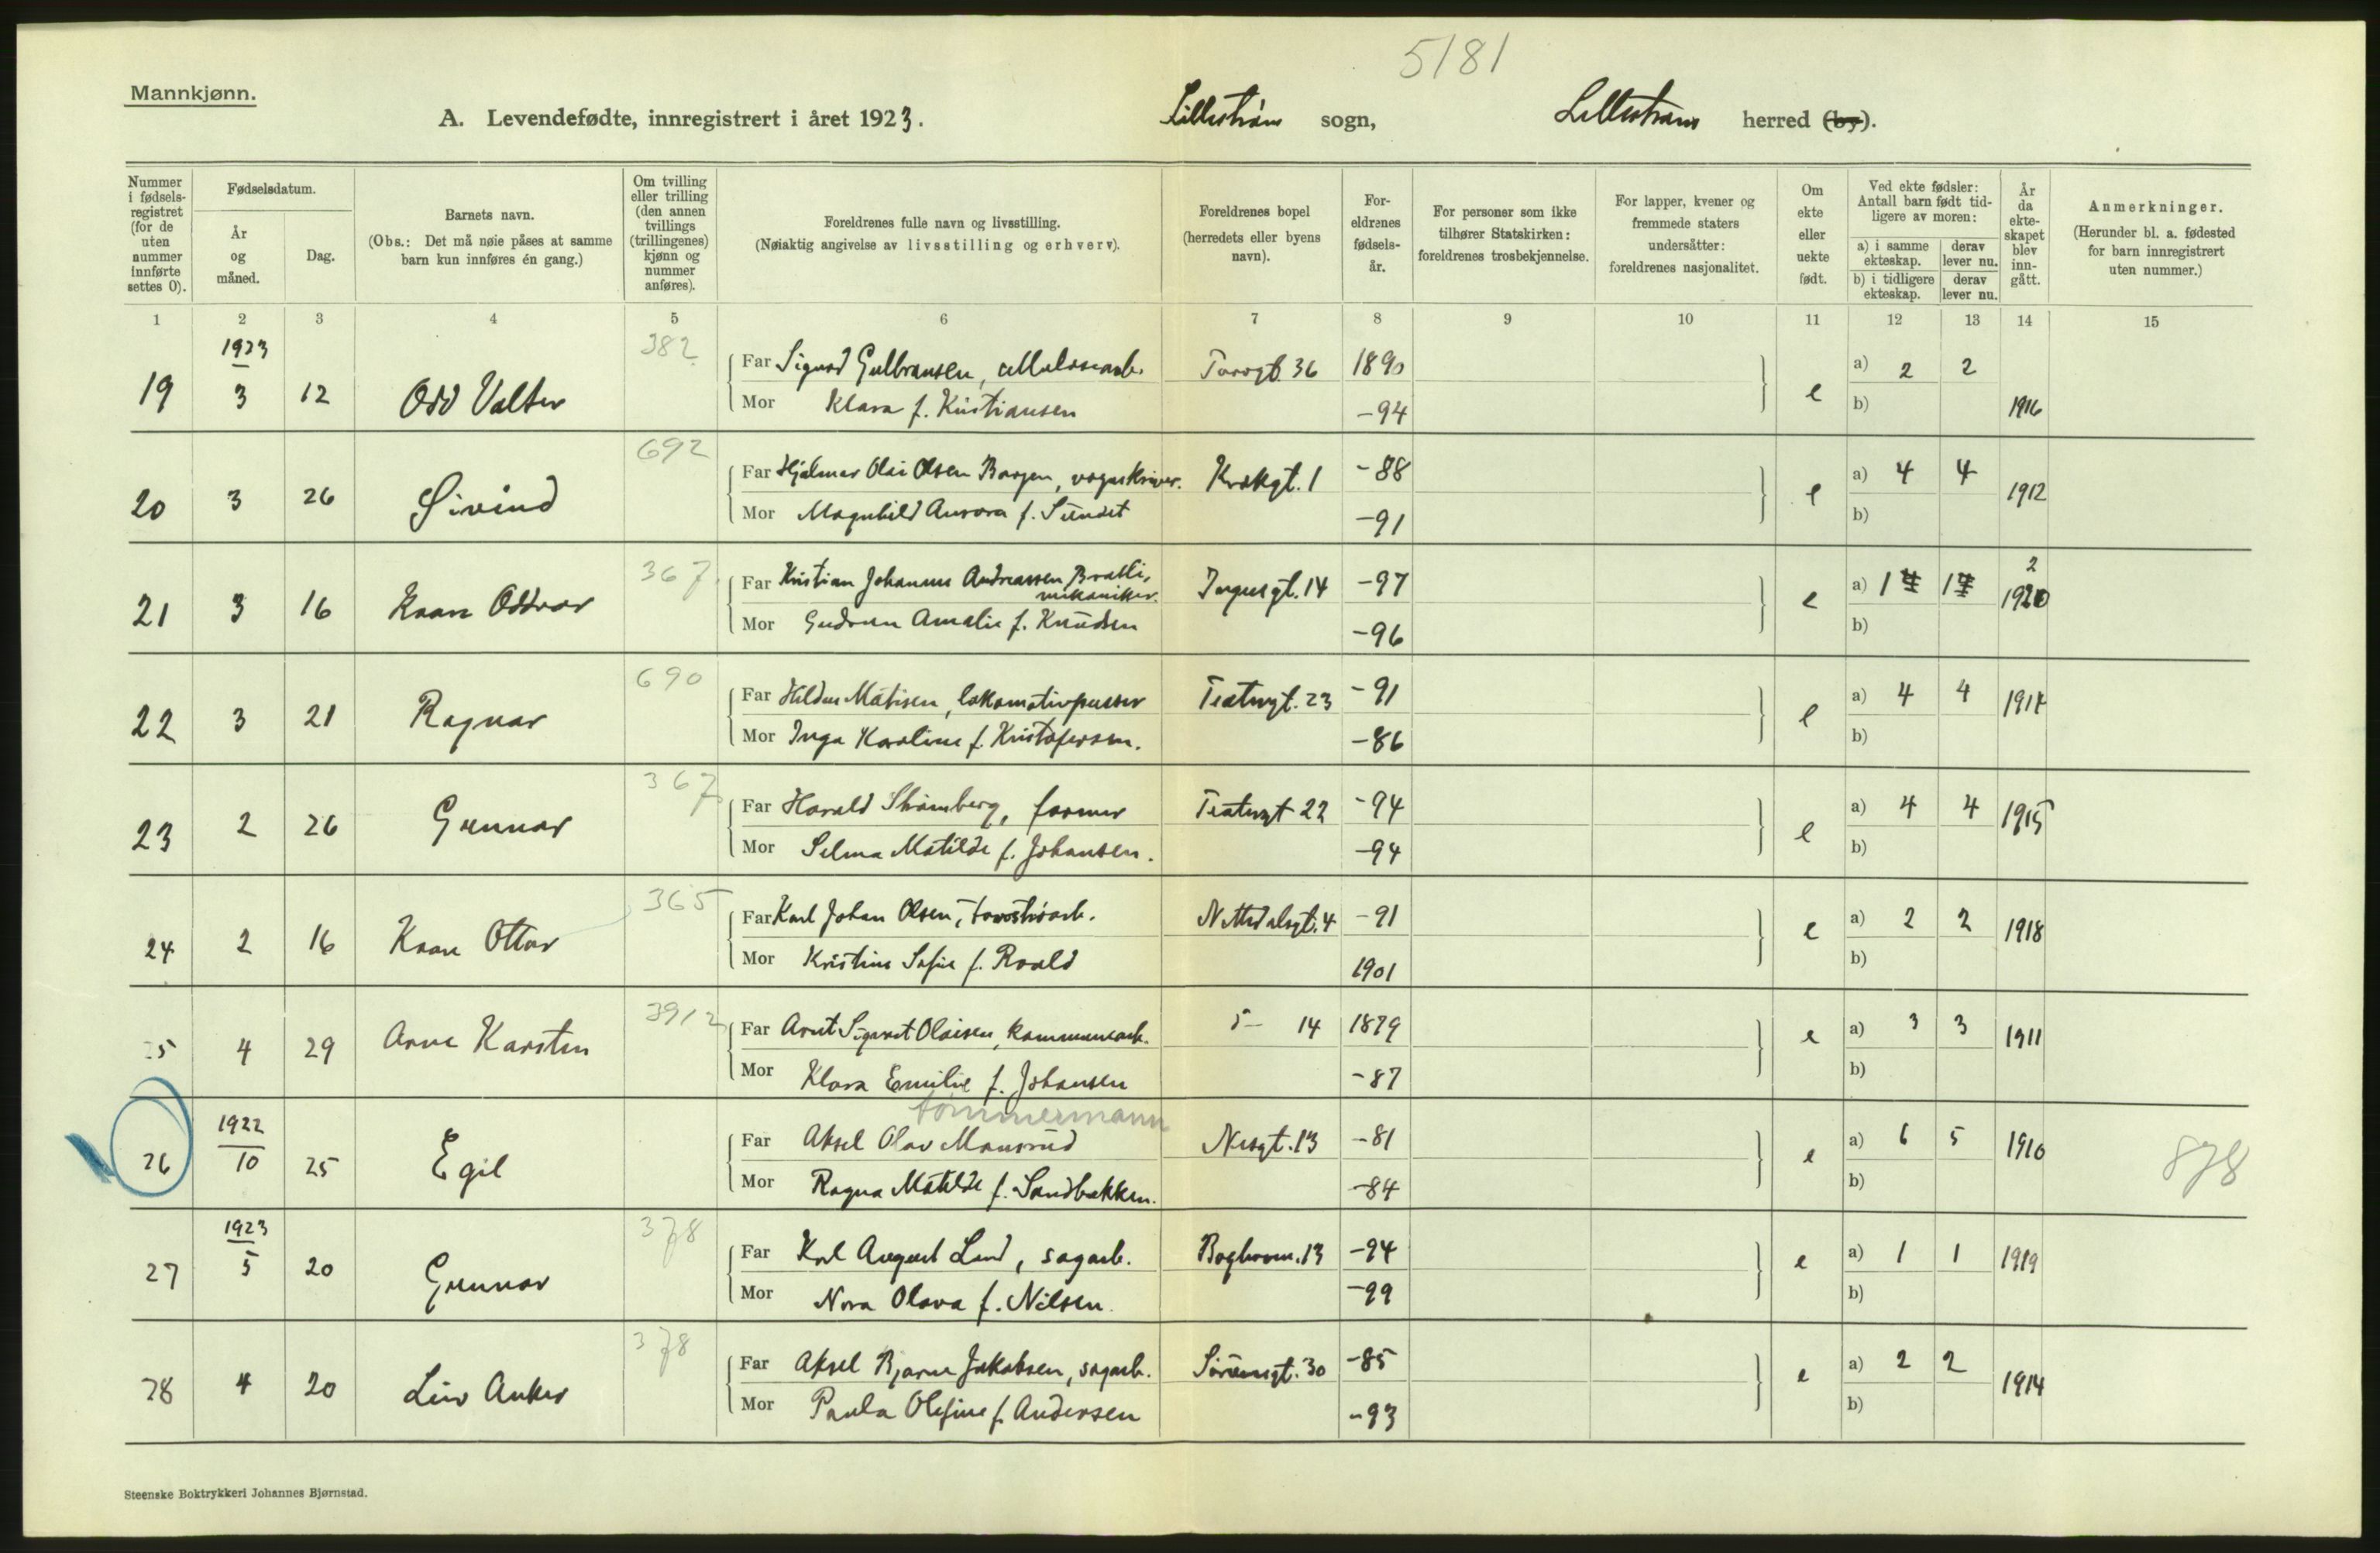 5181
Mannkjønn.
A. Levendefødte, innregistrert i året 1923. Lillestrøm sogn, Lillestrøm herred (by).
Nummer i fødsels-registret (for de uten nummer innførte settes 0).
Fødselsdatum.
År og måned.
Dag.
Barnets navn.
(Obs.: Det må nøie påses at samme barn kun innføres én gang.)
Om tvilling eller trilling (den annen tvillings (trillingenes) kjønn og nummer anføres).
Foreldrenes fulle navn og livsstilling.
(Nøiaktig angivelse av livsstilling og erhverv).
Foreldrenes bopel (herredets eller byens navn).
For-eldrenes fødsels-år.
For personer som ikke tilhører Statskirken: foreldrenes trosbekjennelse.
For lapper, kvener og fremmede staters undersåtter: foreldrenes nasjonalitet.
Om ekte eller uekte født.
Ved ekte fødsler: Antall barn født tid-ligere av moren:
a) i samme ekteskap. derav lever nu.
b) i tidligere ekteskap. derav lever nu.
År da ekte-skapet blev inn-gått.
Anmerkninger.
(Herunder bl. a. fødested for barn innregistrert uten nummer.)
1 2 3 4 5 6 7 8 9 10 11 12 13 14 15
19 1923 3 12 Odd Valter 382 Far Sigurd Gulbransen, cellulosearb. Torvgt. 36 1890 e a) 2 2 1916
Mor Klara f. Kristiansen -94 b)
20 3 26 Øivind 692 Far Hjalmar Olai Olsen Borgen, vognskriver. Krokgt. 1 -88 e a) 4 4 1912
Mor Magnhild Aurora f. Sundet -91 b)
21 3 16 Kaare Oddvar 367 Far Kristian Johannes Andreassen Bratli, mekaniker. 14 -97 e a) 1 1 1920 2
Mor Gudrun Amalie f. Knudsen -96 b)
22 3 21 Ragnar 690 Far Matisen, lokomotivpusser Teatergt. 23 -91 e a) 4 4 1914
Mor Inga Karoline f. Kristofersen. -86 b)
23 2 26 Gunnar 367 Far Harald Strømberg, former Teatergt 22 -94 e a) 4 4 1915
Mor Selma Matilde f. Johansen. -94 b)
24 2 16 Kaare Ottar 365 Far Karl Johan Olsen, torvstrøarb. Nittedalsgt. 4 -91 e a) 2 2 1918
Mor Kristine Sofie f. Roald 1901 b)
25 4 29 Arne Karsten 3912 Far Arnt Sigvart Olaisen, kommunearb. 14 1879 e a) 3 3 1911
Mor Klara Emilie f. Johansen -87 b)
tømmermann
26 1922 10 25 Egil Far Aksel Olav Mansrud Nesgt. 13 -81 e a) 6 5 1910 878
Mor Ragna Matilde f. Sandbakken. -84 b)
27 1923 5 20 Gunnar 378 Far Karl August Lund, sagarb. 13 -94 e a) 1 1 1919
Mor Nora Olava f. Nilsen. -99 b)
28 4 20 Leiv Anker 378 Far Aksel Bjarne Jakobsen, sagarb. Sørumsgt. 30 -85 e a) 2 2 1914
Mor Paula Olefine f. Andersen -93 b)
Steenske Boktrykkeri Johannes Bjørnstad.